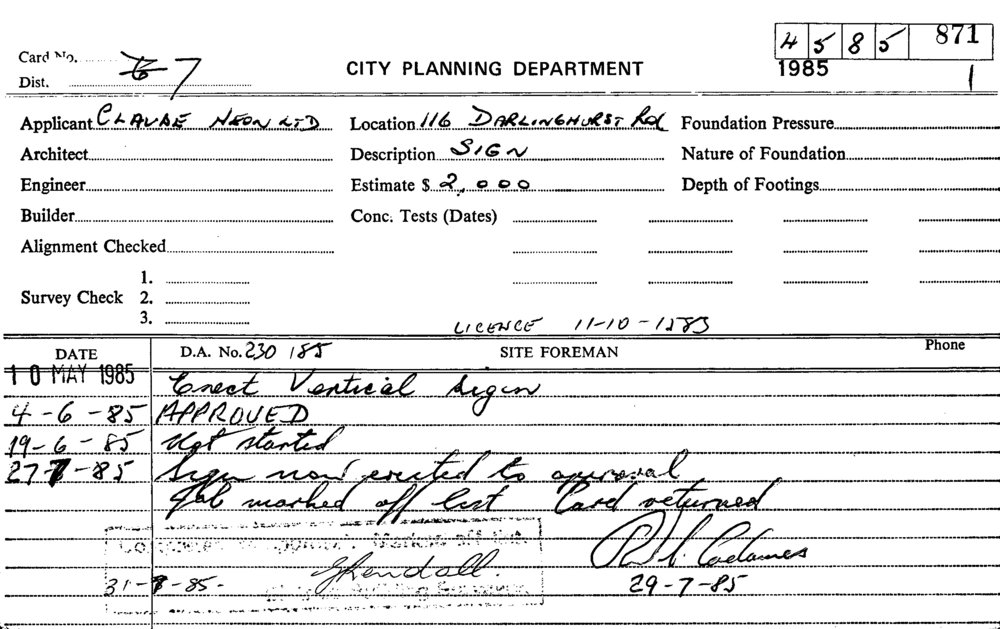 4 5 8 5 871
1985 1
Card No.
Dist. 6 7
CITY PLANNING DEPARTMENT
Applicant CLAUDE NEON LTD Location 116 DARLINGHURST Rd Foundation Pressure
Architect Description SIGN Nature of Foundation
Engineer Estimate $ 2,000 Depth of Footings
Builder Conc. Tests (Dates)
Alignment Checked
Survey Check 1.
2.
3.
LICENCE 11-10-1583
DATE D.A. No. 230/85 SITE FOREMAN Phone
10 MAY 1985 Erect Vertical Sign
4-6-85 APPROVED
19-6-85 Not started
27-7-85 Sign now erected to approval
Job marked off list Card returned
Marked off list
31-7-85. 29-7-85